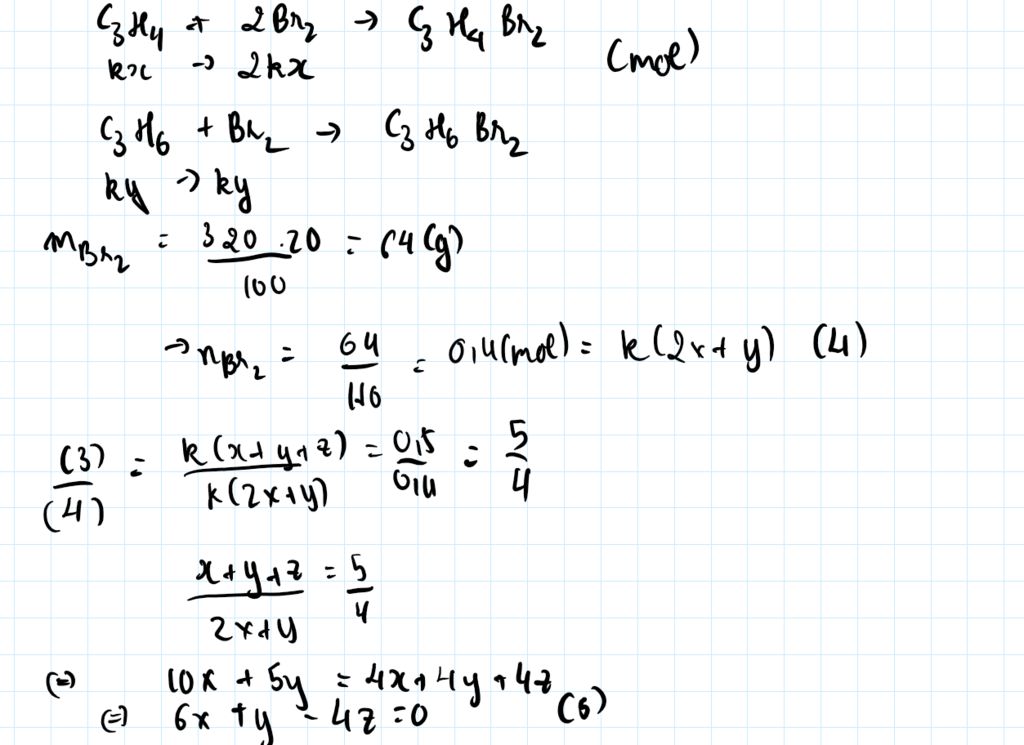 C₃H₄ + 2Br₂ → C₃H₄Br₂
kx → 2kx (mol)
C₃H₆ + Br₂ → C₃H₆Br₂
ky → ky
m_Br₂ = 320.20/100 = 64(g)
→ n_Br₂ = 64/160 = 0,4(mol) = k(2x+y) (4)
(3)/(4) = k(x+y+z)/k(2x+y) = 0,5/0,4 = 5/4
x+y+z/2x+y = 5/4
(=) 10x + 5y = 4x+4y+4z
(=) 6x + y - 4z = 0 (6)